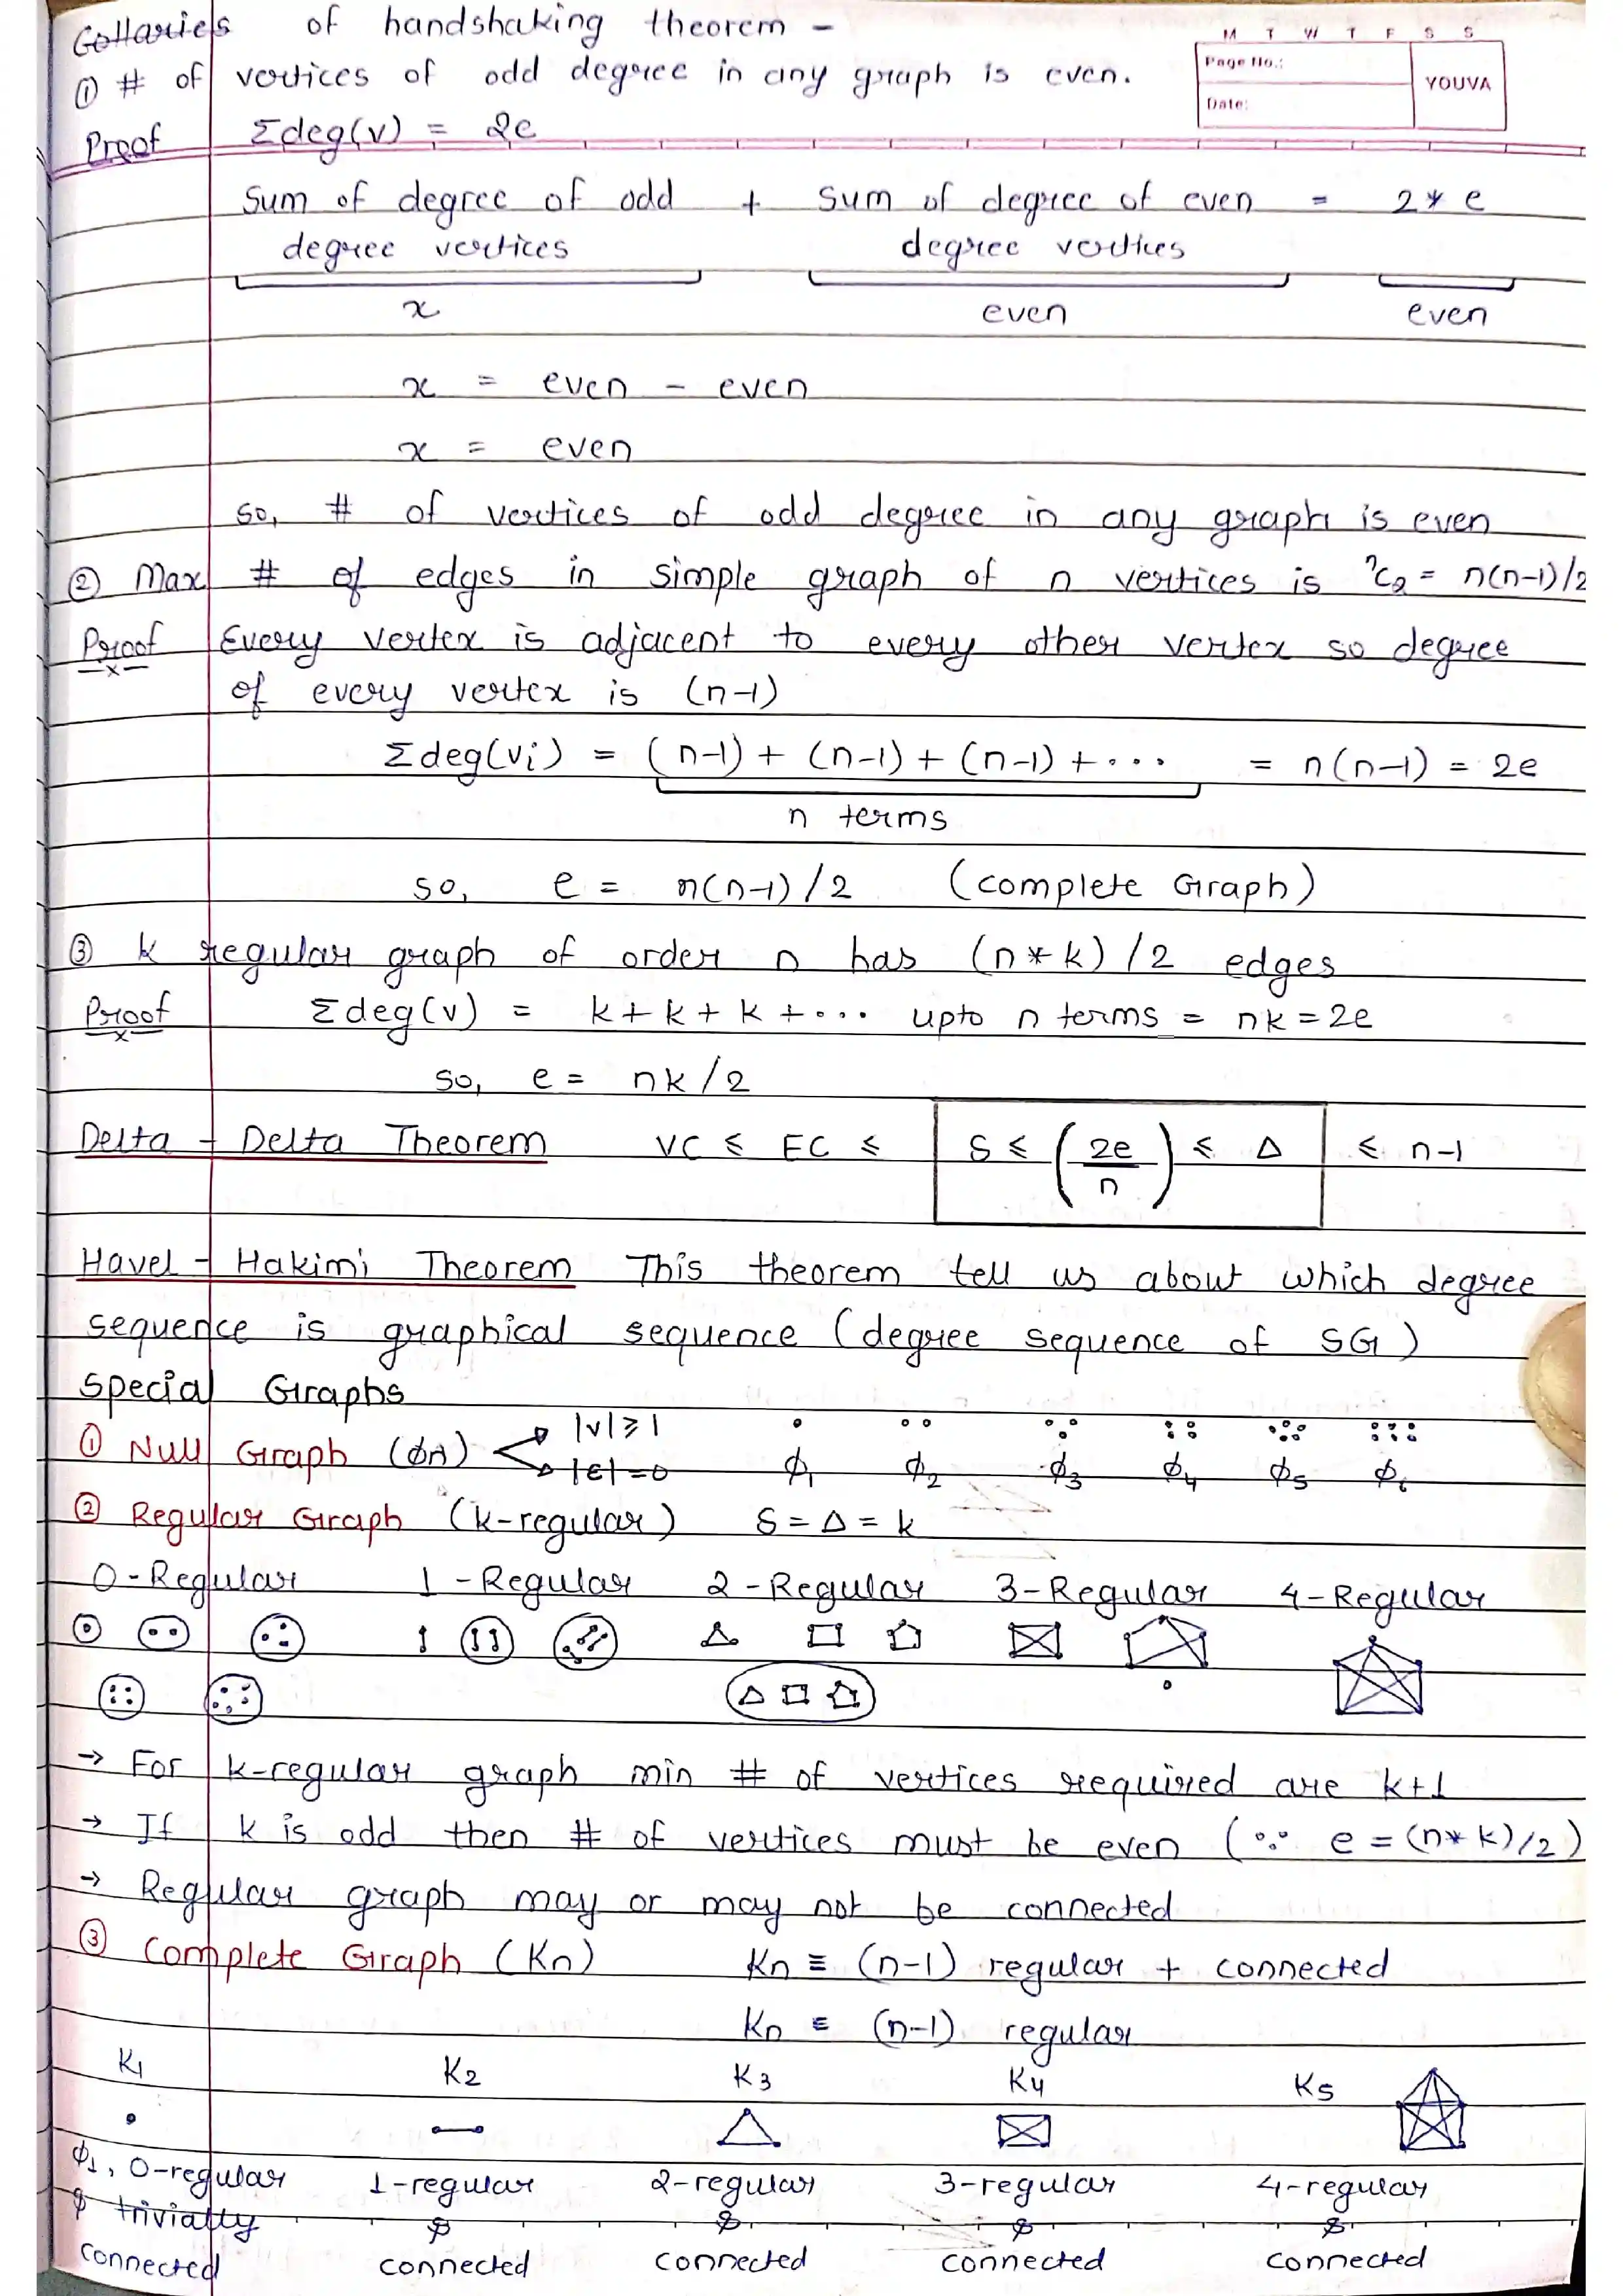 Collaries of handshaking theorem -
M T W T F S S
Page No.:
Date:
YOUVA
① # of vertices of odd degree in any graph is even.
Proof Σdeg(v) = 2e
Sum of degree of odd + Sum of degree of even = 2 * e
degree vertices degree vertices
x even even
x = even - even
x = even
so, # of vertices of odd degree in any graph is even
② Max # of edges in simple graph of n vertices is ⁿC₂ = n(n-1)/2
Proof Every vertex is adjacent to every other vertex so degree
of every vertex is (n-1)
Σdeg(vi) = (n-1) + (n-1) + (n-1) + ... = n(n-1) = 2e
n terms
so, e = n(n-1)/2 (complete Graph)
③ k regular graph of order n has (n*k)/2 edges
Proof Σdeg(v) = k + k + k + ... upto n terms = nk = 2e
so, e = nk/2
Delta - Delta Theorem VC ≤ EC ≤ δ ≤ (2e/n) ≤ Δ ≤ n-1
Havel - Hakimi Theorem This theorem tell us about which degree
sequence is graphical sequence (degree sequence of SG)
Special Graphs
① Null Graph (ϕn) |v| ≥ 1
|E| = 0 ϕ₁ ϕ₂ ϕ₃ ϕ₄ ϕ₅ ϕ₆
② Regular Graph (k-regular) δ = Δ = k
0-Regular 1-Regular 2-Regular 3-Regular 4-Regular
→ For k-regular graph min # of vertices required are k+1
→ If k is odd then # of vertices must be even (∵ e = (n*k)/2)
→ Regular graph may or may not be connected
③ Complete Graph (Kn) Kn ≡ (n-1) regular + connected
Kn ≡ (n-1) regular
K₁ K₂ K₃ K₄ K₅
ϕ₁, 0-regular 1-regular 2-regular 3-regular 4-regular
& trivially & & & &
connected connected connected connected connected